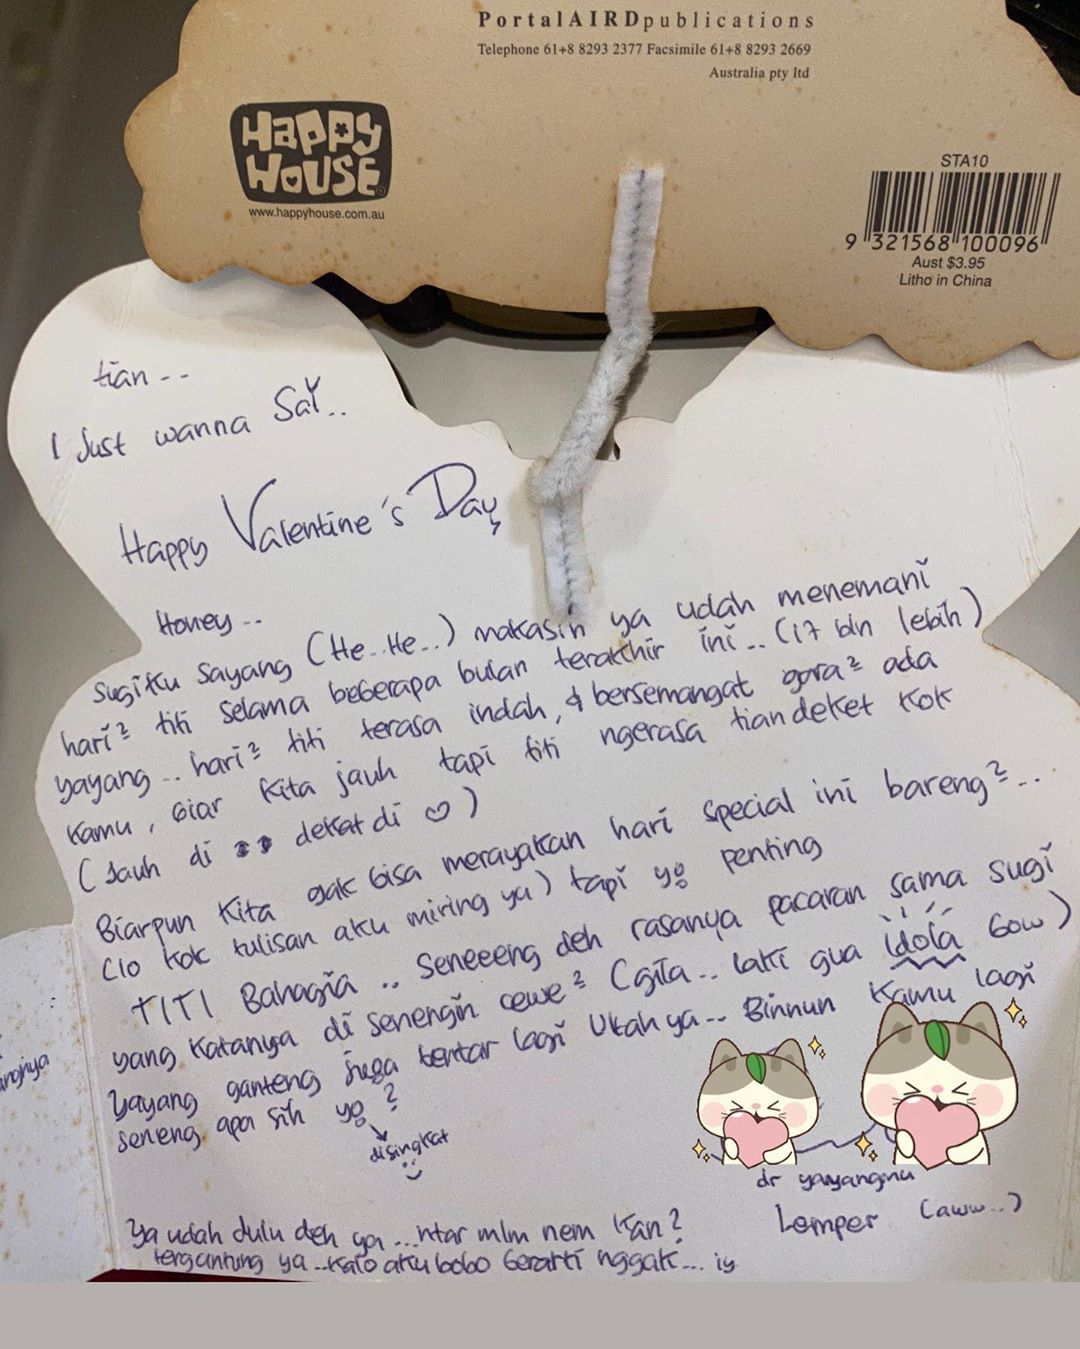 PortalAIRDpublications
Telephone 61+8 8293 2377 Facsimile 61+8 8293 2669
Australia pty ltd
HAPPY HOUSE
www.happyhouse.com.au
STA10
9 321568 100096
Aust $3.95
Litho in China
tian --
I Just wanna Say..
Happy Valentine's Day
Honey..
sugiku sayang (He..He..) makasih ya udah menemani
hari² titi selama beberapa bulan terakhir ini.. (17 bln lebih)
yayang .. hari² titi terasa indah, & bersemangat gara² ada
kamu, biar kita jauh tapi titi ngerasa tian deket kok
(Jauh di dekat di ♡)
Biarpun kita gak bisa merayakan hari special ini bareng²...
(lo kok tulisan aku miring ya) tapi yg penting
TITI Bahagia .. seneeeng deh rasanya pacaran sama sugi
yang katanya di senengin cewe² (gila.. laki gua idola bow)
Yayang ganteng juga bentar lagi Ultah ya.. Binnun kamu lagi
seneng apa sih yg ?
disingkat
dr yayangmu
Lemper (aww..)
Ya udah dulu deh ya ...ntar mlm nem kan?
tergantung ya ..kalo aku bobo berarti nggak...
angnya